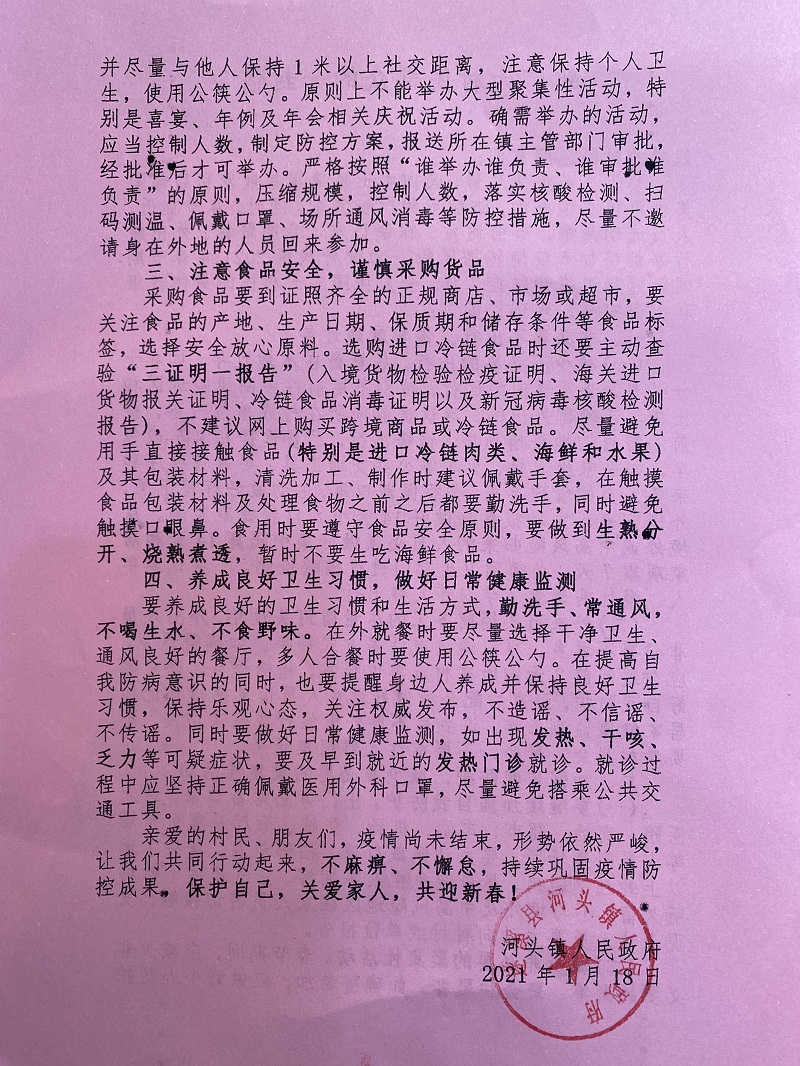 并尽量与他人保持1米以上社交距离，注意保持个人卫
生，使用公筷公勺。原则上不能举办大型聚集性活动，特
别是喜宴、年例及年会相关庆祝活动。确需举办的活动，
应当控制人数，制定防控方案，报送所在镇主管部门审批，
经批准后才可举办。严格按照“谁举办谁负责、谁审批谁
负责”的原则，压缩规模，控制人数，落实核酸检测、扫
码测温、佩戴口罩、场所通风消毒等防控措施，尽量不邀
请身在外地的人员回来参加。
三、注意食品安全，谨慎采购货品
采购食品要到证照齐全的正规商店、市场或超市，要
关注食品的产地、生产日期、保质期和储存条件等食品标
签，选择安全放心原料。选购进口冷链食品时还要主动查
验“三证明一报告”(入境货物检验检疫证明、海关进口
货物报关证明、冷链食品消毒证明以及新冠病毒核酸检测
报告)，不建议网上购买跨境商品或冷链食品。尽量避免
用手直接接触食品(特别是进口冷链肉类、海鲜和水果)
及其包装材料，清洗加工、制作时建议佩戴手套，在触摸
食品包装材料及处理食物之前之后都要勤洗手，同时避免
触摸口眼鼻。食用时要遵守食品安全原则，要做到生熟分
开、烧熟煮透，暂时不要生吃海鲜食品。
四、养成良好卫生习惯，做好日常健康监测
要养成良好的卫生习惯和生活方式，勤洗手、常通风，
不喝生水、不食野味。在外就餐时要尽量选择干净卫生、
通风良好的餐厅，多人合餐时要使用公筷公勺。在提高自
我防病意识的同时，也要提醒身边人养成并保持良好卫生
习惯，保持乐观心态，关注权威发布，不造谣、不信谣、
不传谣。同时要做好日常健康监测，如出现发热、干咳、
乏力等可疑症状，要及早到就近的发热门诊就诊。就诊过
程中应坚持正确佩戴医用外科口罩，尽量避免搭乘公共交
通工具。
亲爱的村民、朋友们，疫情尚未结束，形势依然严峻，
让我们共同行动起来，不麻痹、不懈怠，持续巩固疫情防
控成果。保护自己，关爱家人，共迎新春！
河头镇人民政府
2021年1月18日
县河头镇人民政府